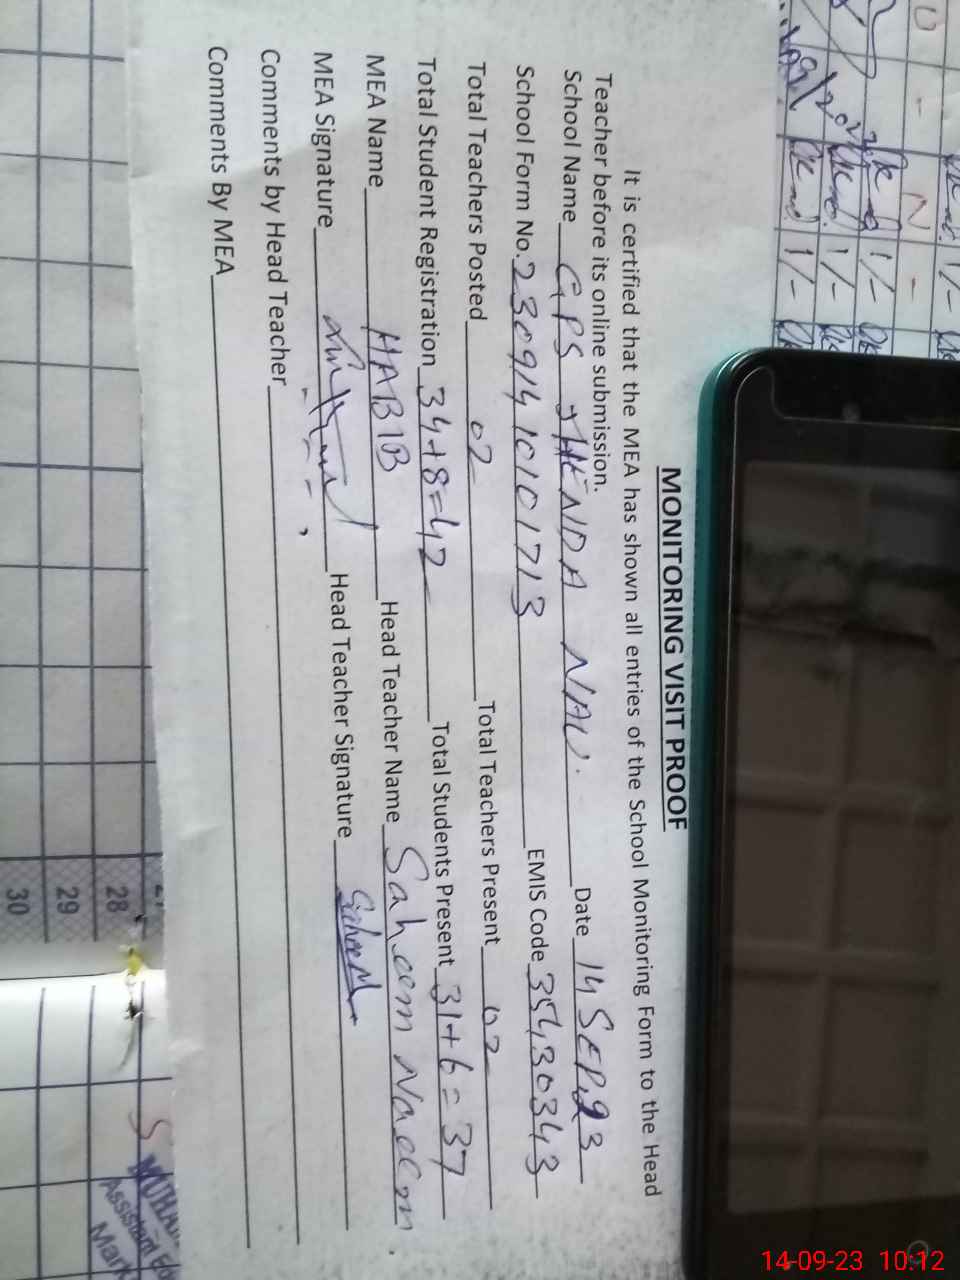 MONITORING VISIT PROOF
It is certified that the MEA has shown all entries of the School Monitoring Form to the Head
Teacher before its online submission.
School Name GPS JHENDA NAU. Date 14 SEP, 23
School Form No. 23091410101713 EMIS Code 35430343
Total Teachers Posted 02 Total Teachers Present 02
Total Student Registration 34+8=42 Total Students Present 31+6=37
MEA Name HABIB Head Teacher Name Saheem Naeem
MEA Signature Head Teacher Signature
Comments by Head Teacher
Comments By MEA
28
29
30
Mark
14-09-23 10:12